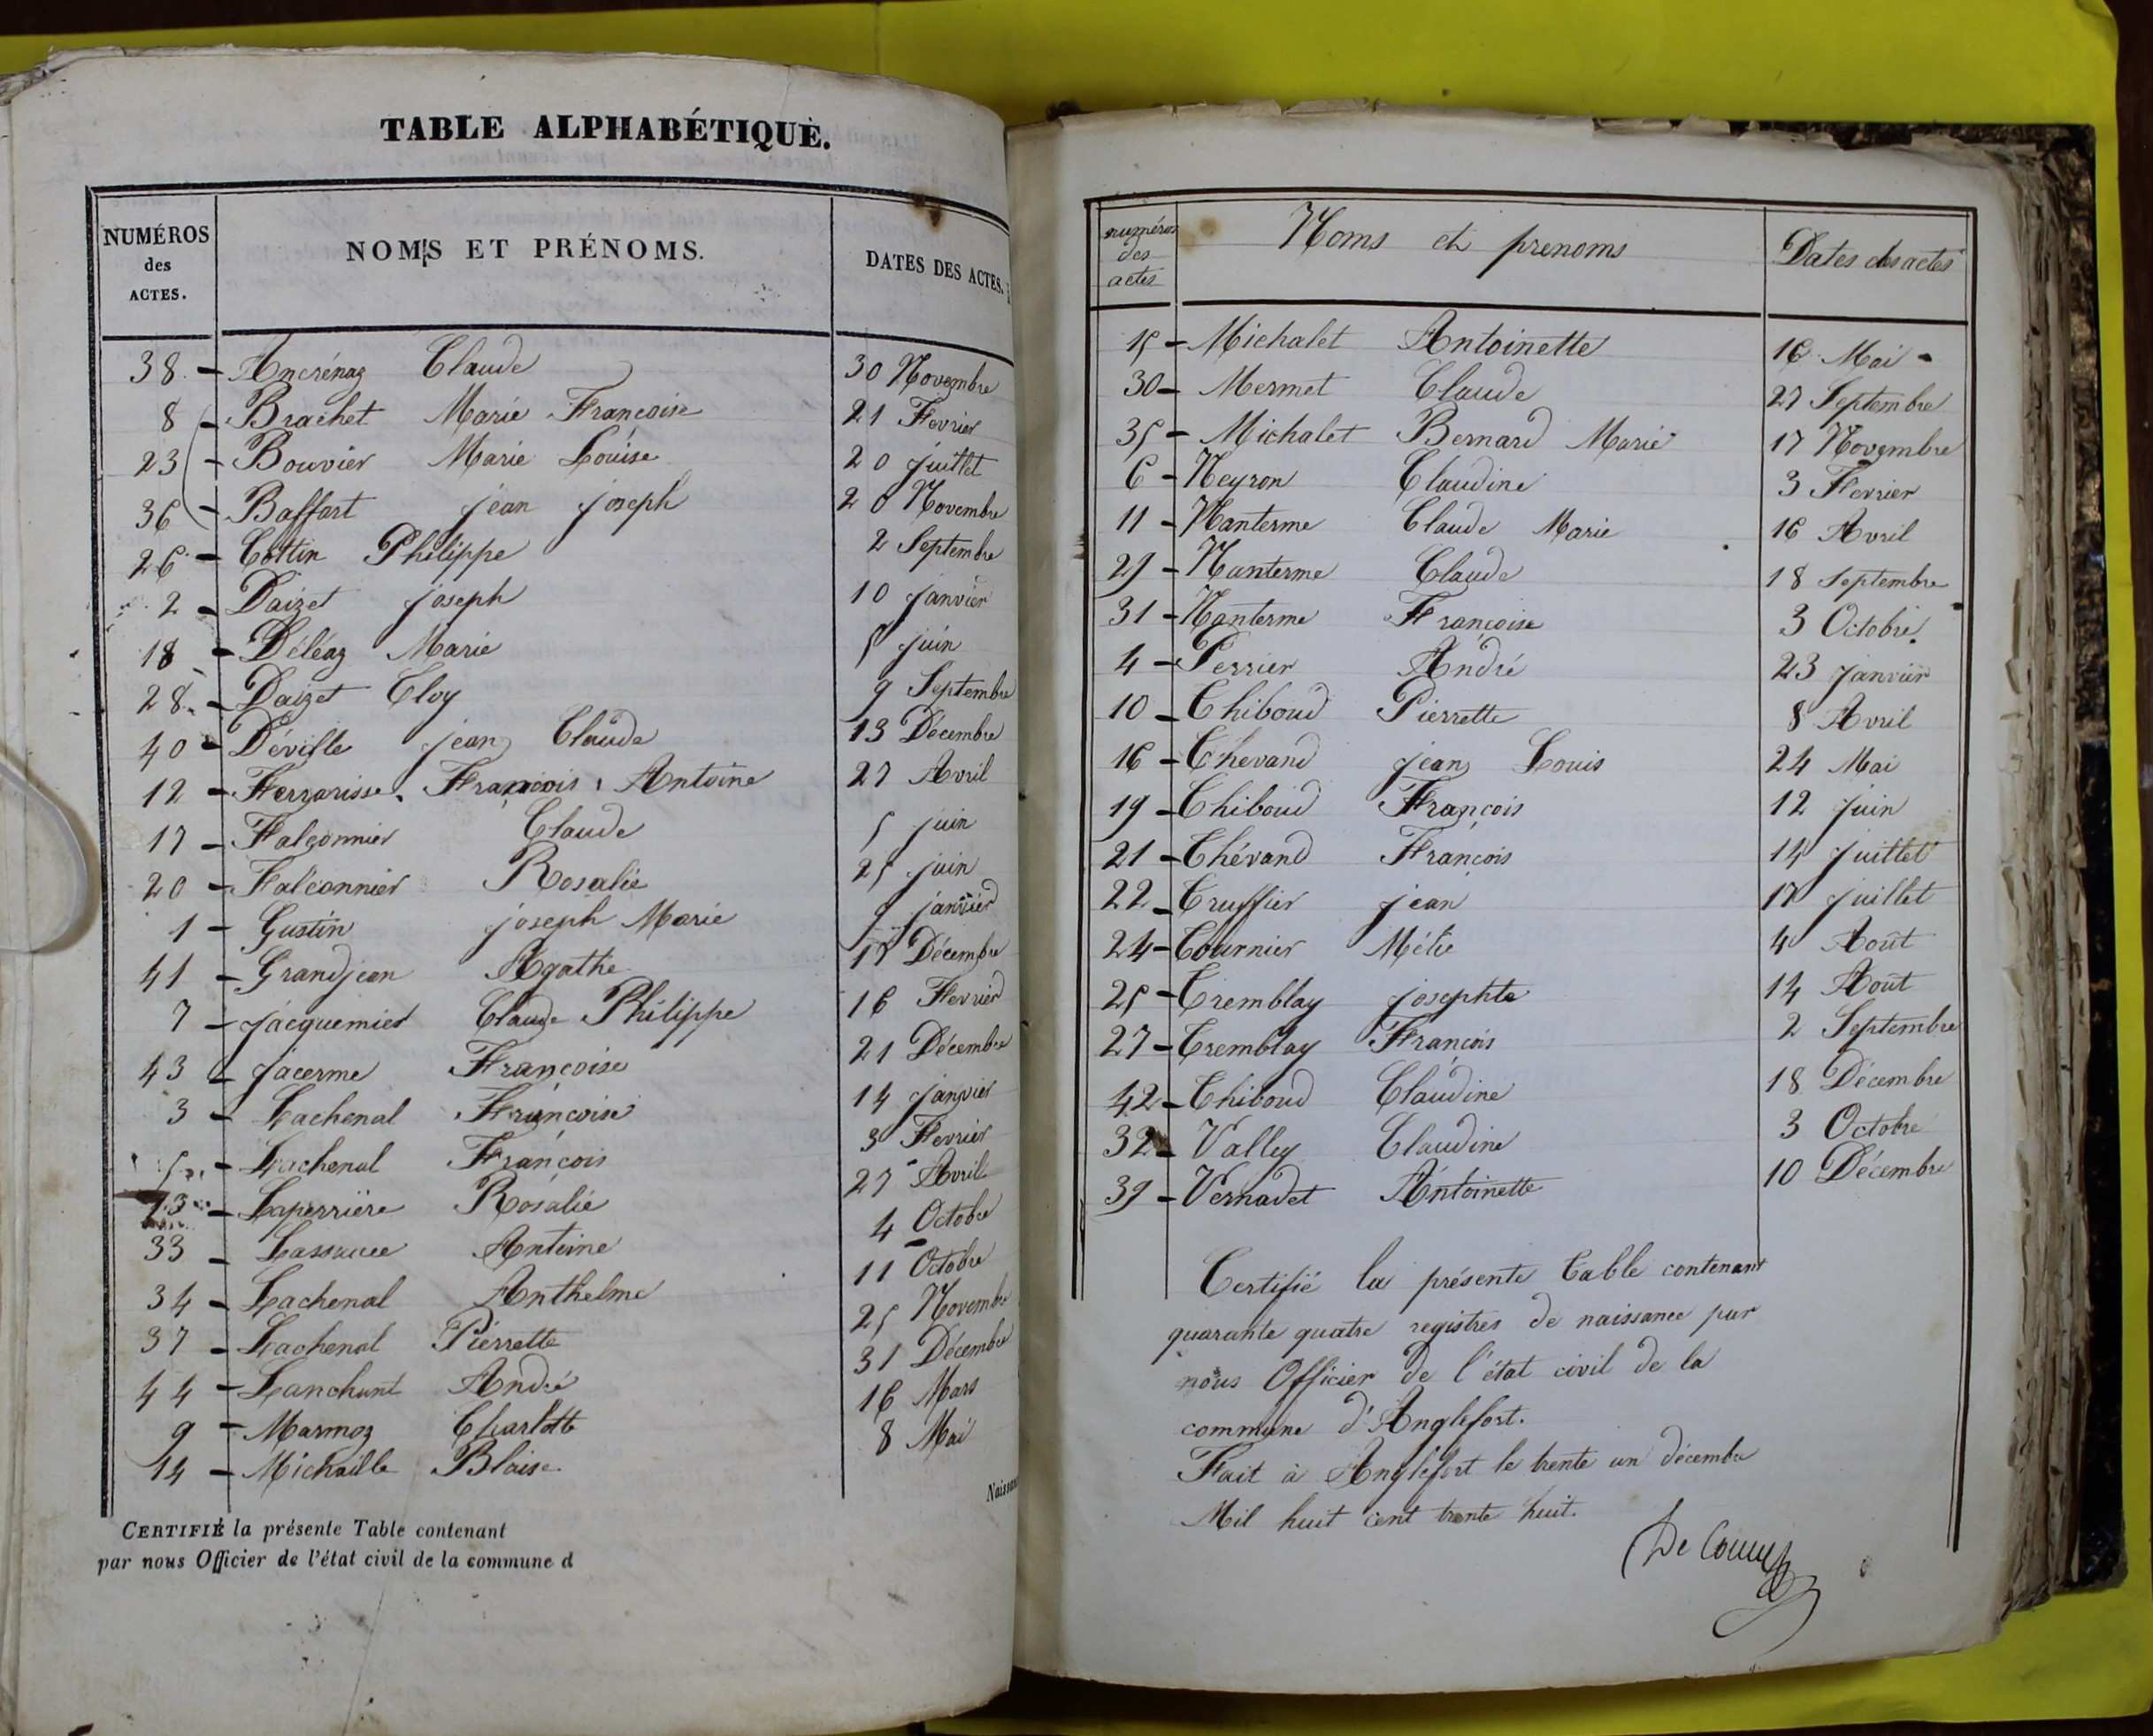 TABLE ALPHABÉTIQUE.
NUMÉROS des ACTES. NOMS ET PRÉNOMS. DATES DES ACTES.
38 - Ancrénaz Claude 30 Novembre
8 - Brachet Marie Françoise 21 Fevrier
23 - Bouvier Marie Louise 20 juillet
36 - Baffart jean joseph 20 Novembre
26 - Cottin Philippe 2 Septembre
2 - Daizet joseph 10 janvier
18 - Déléaz Marie 5 juin
28 - Daizet Eloy 9 Septembre
40 - Déville jean Claude 13 Décembre
12 - Ferrarisse François Antoine 27 Avril
17 - Falconnier Claude 5 juin
20 - Falconnier Rosalie 25 juin
1 - Gustin joseph Marie 9 janvier
41 - Grandjean Agathe 17 Décembre
7 - jacquemier Claude Philippe 16 Fevrier
43 - jacerme Françoise 21 Décembre
3 - Lachenal Françoise 14 janvier
5 - Lachenal François 3 Fevrier
13 - Laperrière Rosalie 27 Avril
33 - Antoine 4 Octobre
34 - Lachenal Anthelme 11 Octobre
37 - Lachenal Pierrette 25 Novembre
44 - Lanchant André 31 Décembre
9 - Marmoz Charlotte 16 Mars
14 - Michaille Blaise 8 Mai
CERTIFIÉ la présente Table contenant
par nous Officier de l'état civil de la commune d
numéros des actes Noms et prenoms Dates des actes
15 - Michalet Antoinette 16 Mai -
30 - Mermet Claude 27 Septembre
35 - Michalet Bernard Marie 17 Novembre
6 - Neyron Claudine 3 Fevrier
11 - Nanterme Claude Marie 16 Avril
29 - Nanterme Claude 18 Septembre
31 - Nanterme Françoise 3 Octobre.
4 - Perrier André 23 janvier
10 - Thiboud Pierrette 8 Avril
16 - Thevand jean Louis 24 Mai
19 - Thiboud François 12 juin
21 - Thévand François 14 juillet
22 - Truffier jean 17 juillet
24 - Tournier Mélie 4 Août
25 - Tremblay josephte 14 Août
27 - Tremblay François 2 Septembre
42 - Thiboud Claudine 18 Décembre
32 - Valley Claudine 3 Octobre
39 - Vernadet Antoinette 10 Décembre
Certifié la présente table contenant
quarante quatre registres de naissance par
nous Officier de l'état civil de la
commune d'Anglefort.
Fait à Anglefort le trente un décembre
Mil huit cent trente huit.